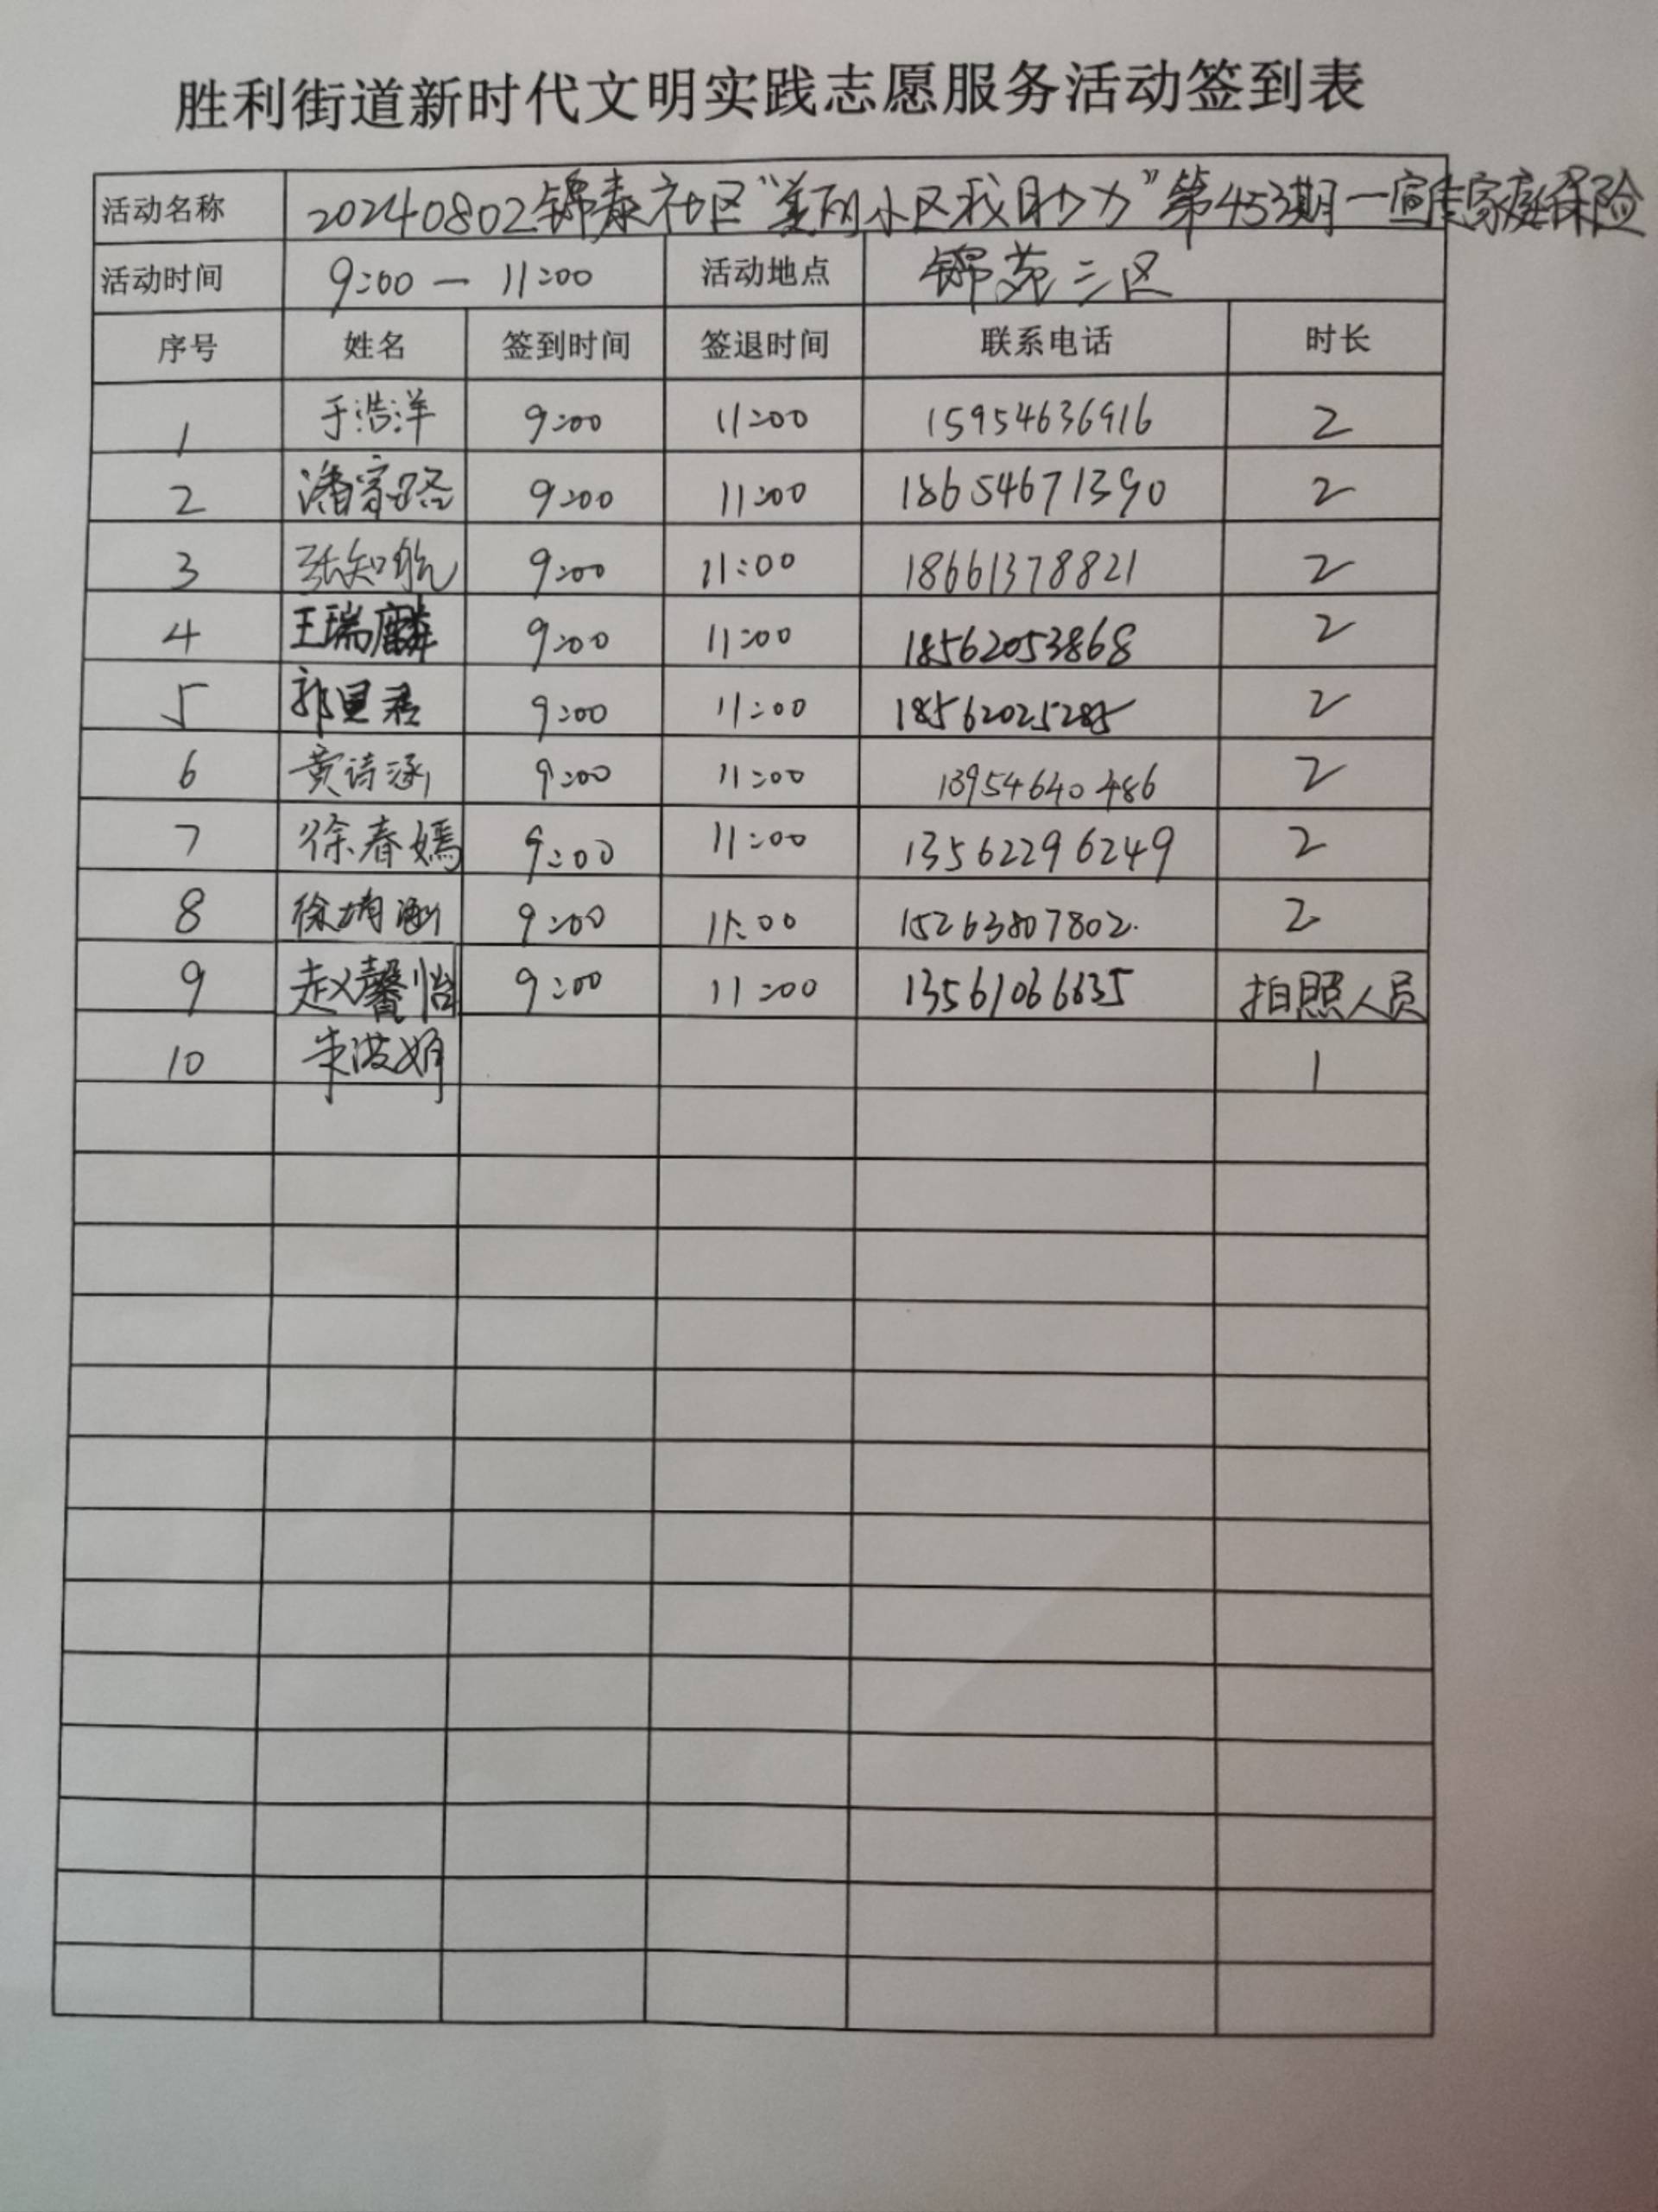 胜利街道新时代文明实践志愿服务活动签到表
活动名称 20240802锦泰社区“美丽小区我助力”第453期一宣传家庭保险
活动时间 9:00 — 11:00 活动地点 锦苑三区
序号 姓名 签到时间 签退时间 联系电话 时长
1 于浩洋 9:00 11:00 15954636916 2
2 潘家路 9:00 11:00 18654671390 2
3 张知航 9:00 11:00 18661378821 2
4 王瑞麟 9:00 11:00 18562053868 2
5 郭昱君 9:00 11:00 18562025285 2
6 黄诗涵 9:00 11:00 13954640486 2
7 徐春嫣 9:00 11:00 13562296249 2
8 徐 涵 9:00 11:00 15263807802. 2
9 赵馨怡 9:00 11:00 13561066635 拍照人员
10 朱波娟 1